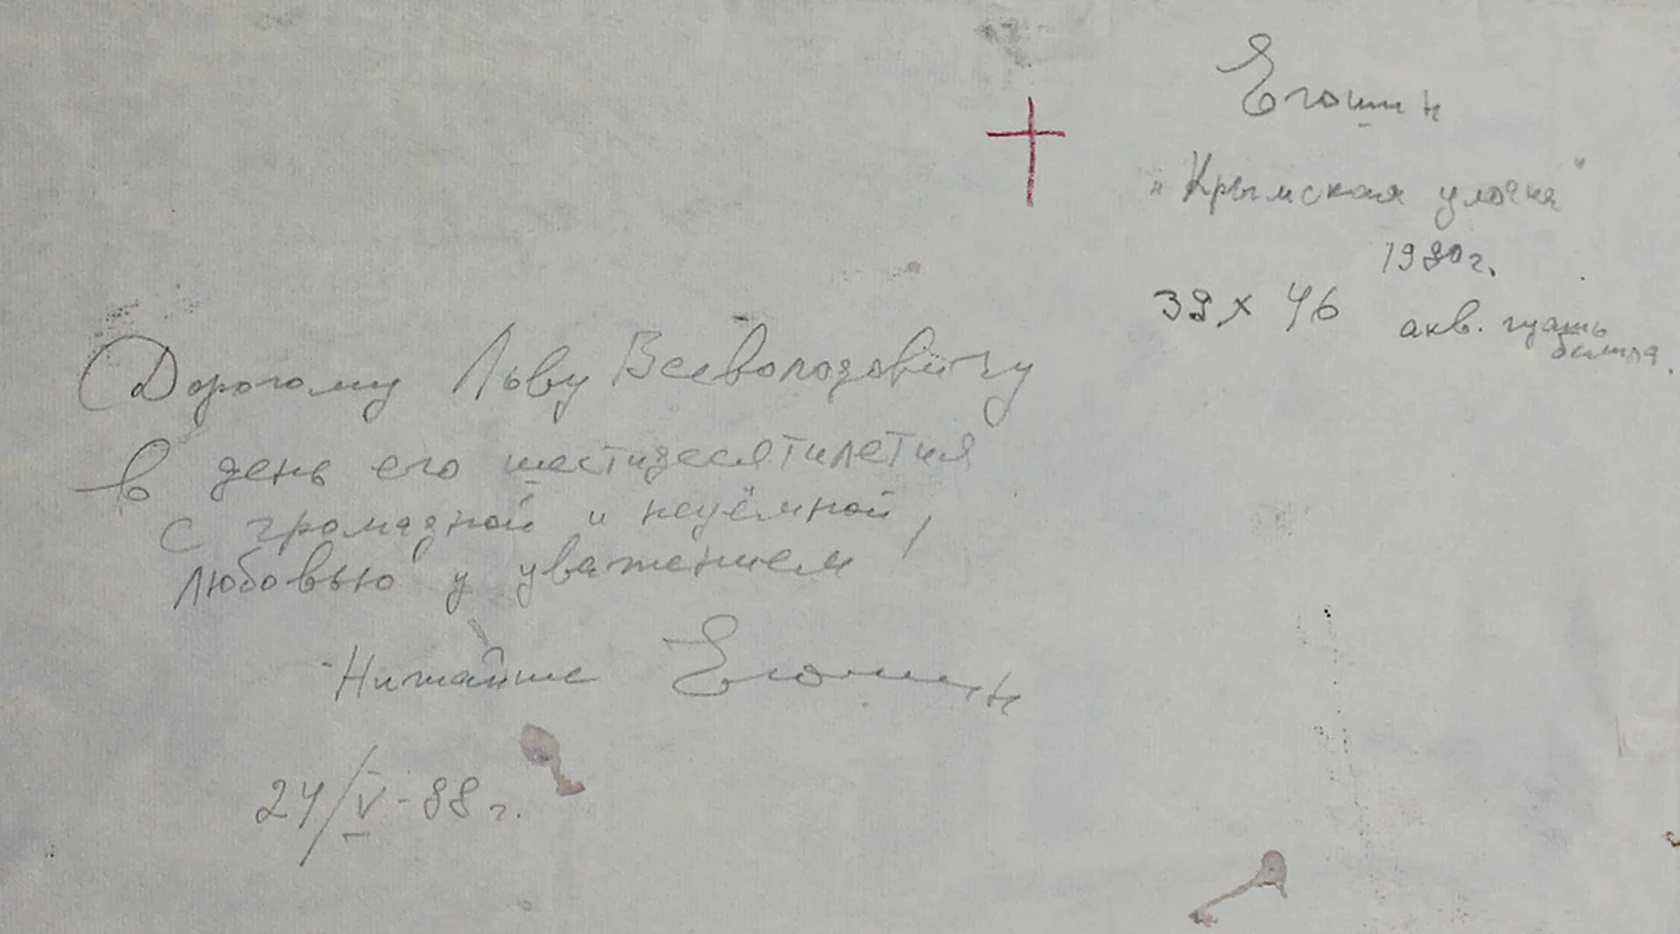 Егошин
"Крымская улочка"
1980г.
39 х 46 акв. гуашь
белила.
Дорогому Льву Всеволодовичу
в день его шестидесятилетия
с громадной и неуёмной,
любовью и уважением
Нижайше Егошин
24/V-88г.